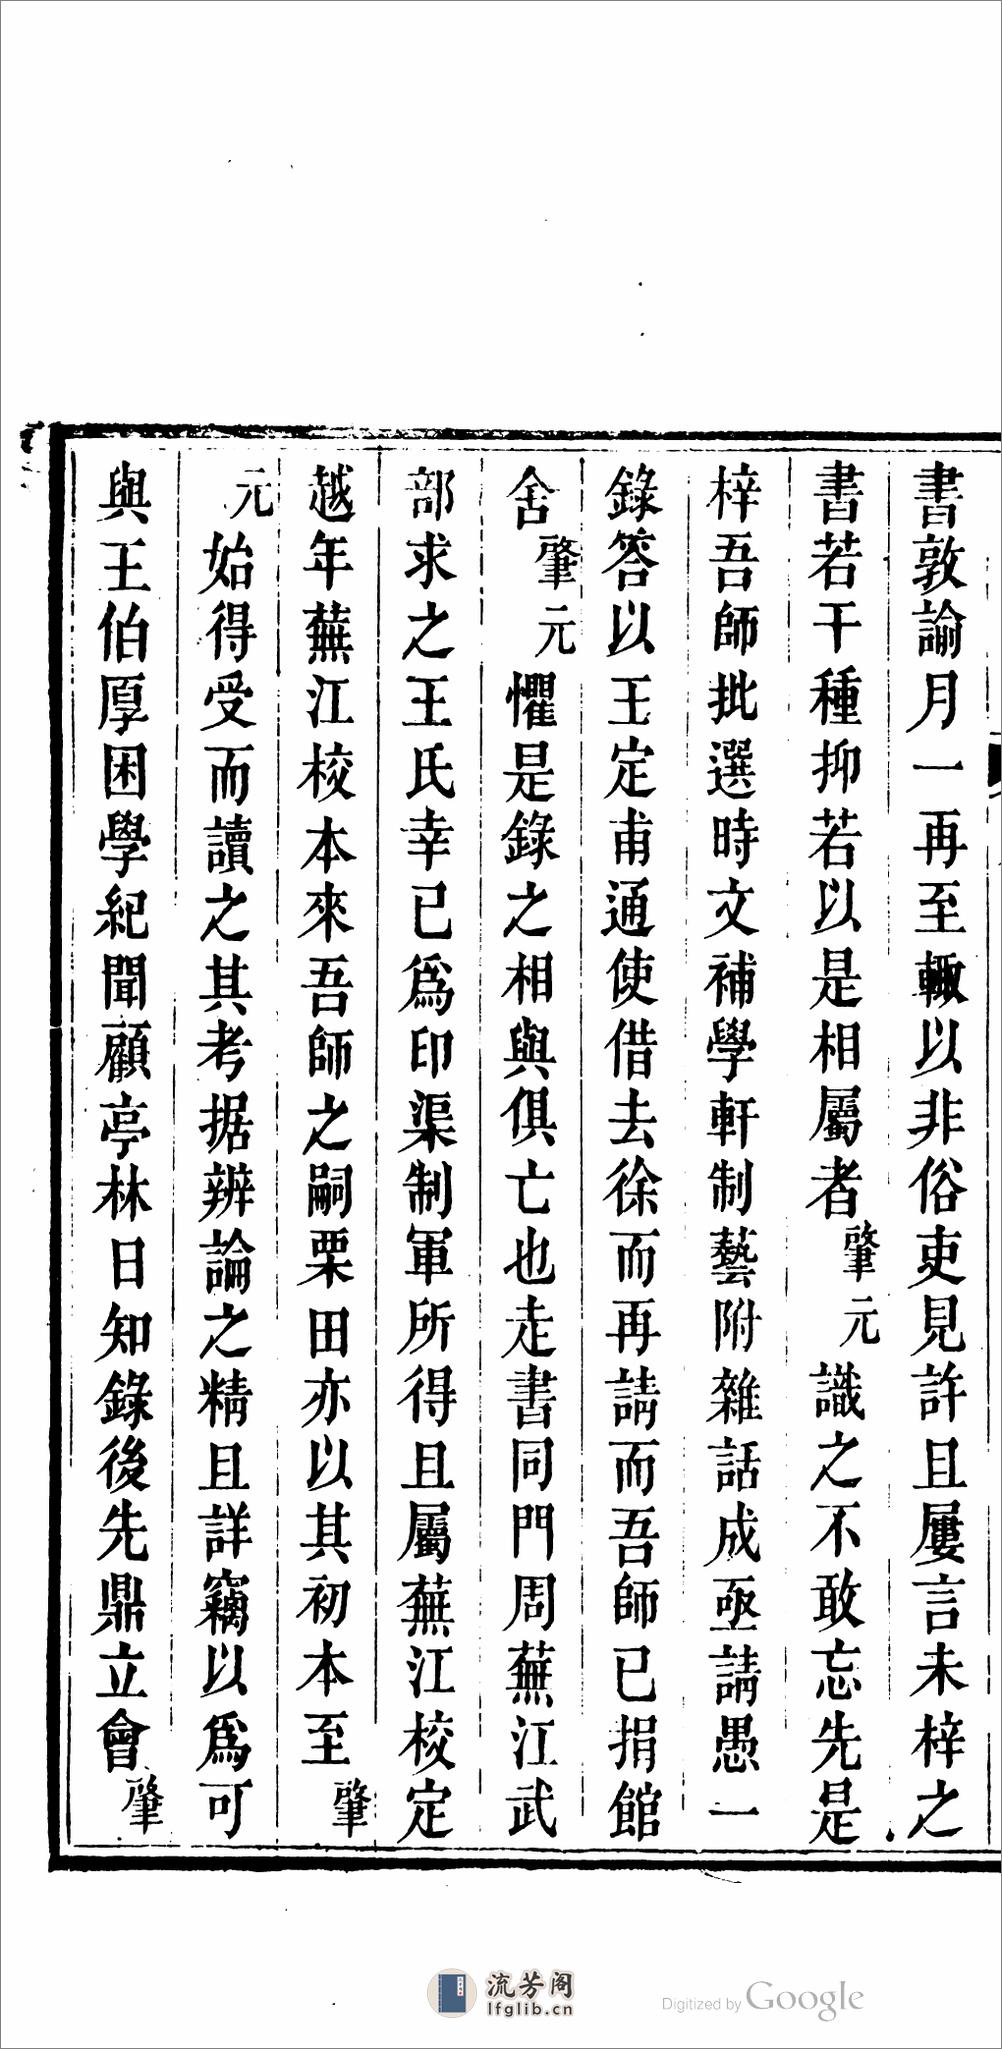 書敦諭月一再至輙以非俗吏見許且屢言未梓之
書若干種抑若以是相屬者肇元識之不敢忘先是
梓吾師批選時文補學軒制藝附雜話成亟請愚一
錄答以王定甫通使借去徐而再請而吾師已捐館
舍肇元懼是錄之相與俱亡也走書同門周蕪江武
部求之王氏幸已爲印渠制軍所得且屬蕪江校定
越年蕪江校本來吾師之嗣栗田亦以其初本至肇
元始得受而讀之其考据辨論之精且詳竊以爲可
與王伯厚困學紀聞顧亭林日知錄後先鼎立會肇
流芳阁
lfglib.cn
Digitized by Google